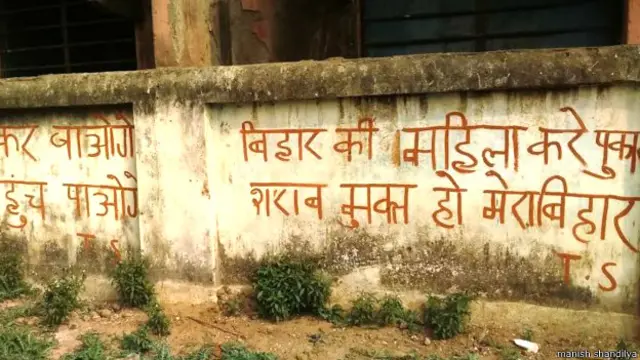 कर बाओगे
हुंच पाओगे
T S
बिहार की महिला करे पुका
शराब मुक्त हो मेरा बिहार
T S
manish shandilya